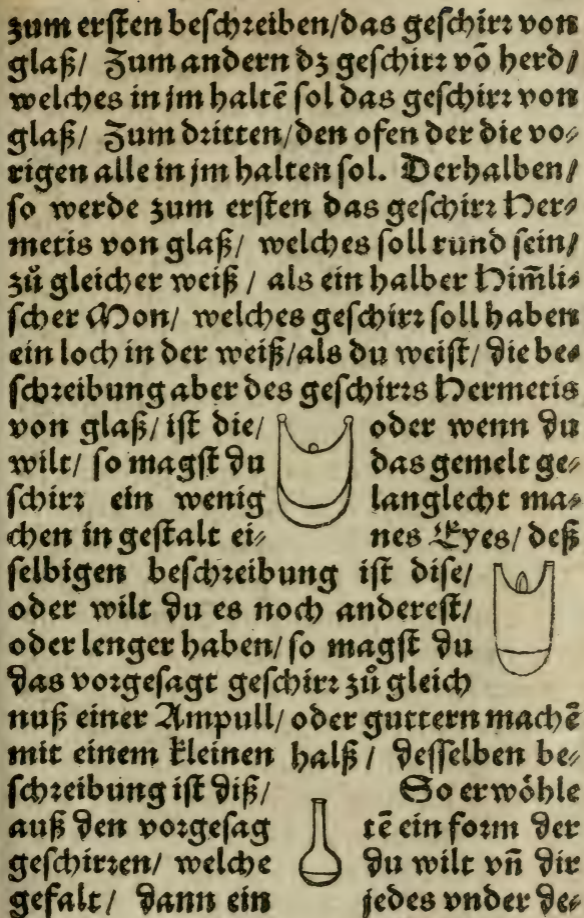 zum erſten beſchꝛeiben/das geſchirꝛ von
glaß/ Zum andern dz geſchirꝛ võ herd/
welches in jm haltē ſol das geſchirꝛ von
glaß/ Zum dꝛitten/den ofen der die vo⸗
rigen alle in jm halten ſol. Derhalben/
ſo werde zum erſten das geſchirꝛ Her⸗
metis von glaß/ welches ſoll rund ſein/
zů gleicher weiß / als ein halber Him̃li⸗
ſcher Mon/ welches geſchirꝛ ſoll haben
ein loch in der weiß/als du weiſt/ Die be⸗
ſchꝛeibung aber des geſchirꝛs Hermetis
von glaß/ iſt die/ oder wenn Du
wilt/ ſo magſt Du das gemelt ge⸗
ſchirꝛ ein wenig langlecht ma⸗
chen in geſtalt ei⸗ nes Eyes/ deß
ſelbigen beſchꝛeibung iſt diſe/
oder wilt Du es noch andereſt/
oder lenger haben/ ſo magſt Du
Das voꝛgeſagt geſchirꝛ zů gleich
nuß einer Ampull/ oder guttern machē
mit einem kleinen halß / Deſſelben be⸗
ſchꝛeibung iſt Diß/ So erwöhle
auß Den voꝛgeſag tē ein foꝛm Der
geſchirꝛen/ welche Du wilt vñ Dir
gefalt/ Dann ein jedes vnder De⸗